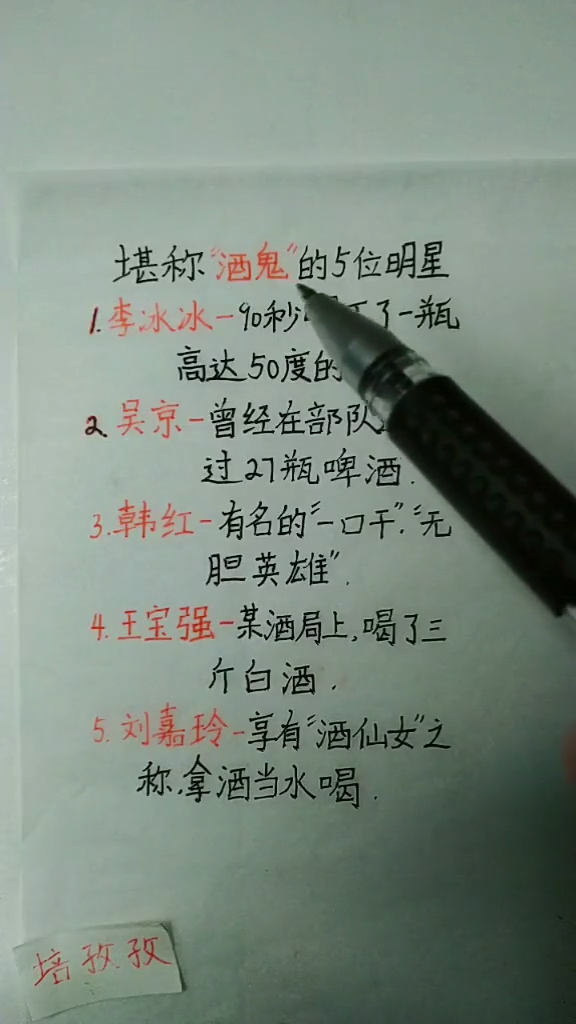 堪称“酒鬼”的5位明星
1.李冰冰-90秒了一瓶
高达50度的
2.吴京-曾经在部队
过27瓶啤酒.
3.韩红-有名的“一口干”.“无
胆英雄”.
4.王宝强-某酒局上,喝了三
斤白酒.
5.刘嘉玲-享有“酒仙女”之
称.拿酒当水喝.
培孜孜